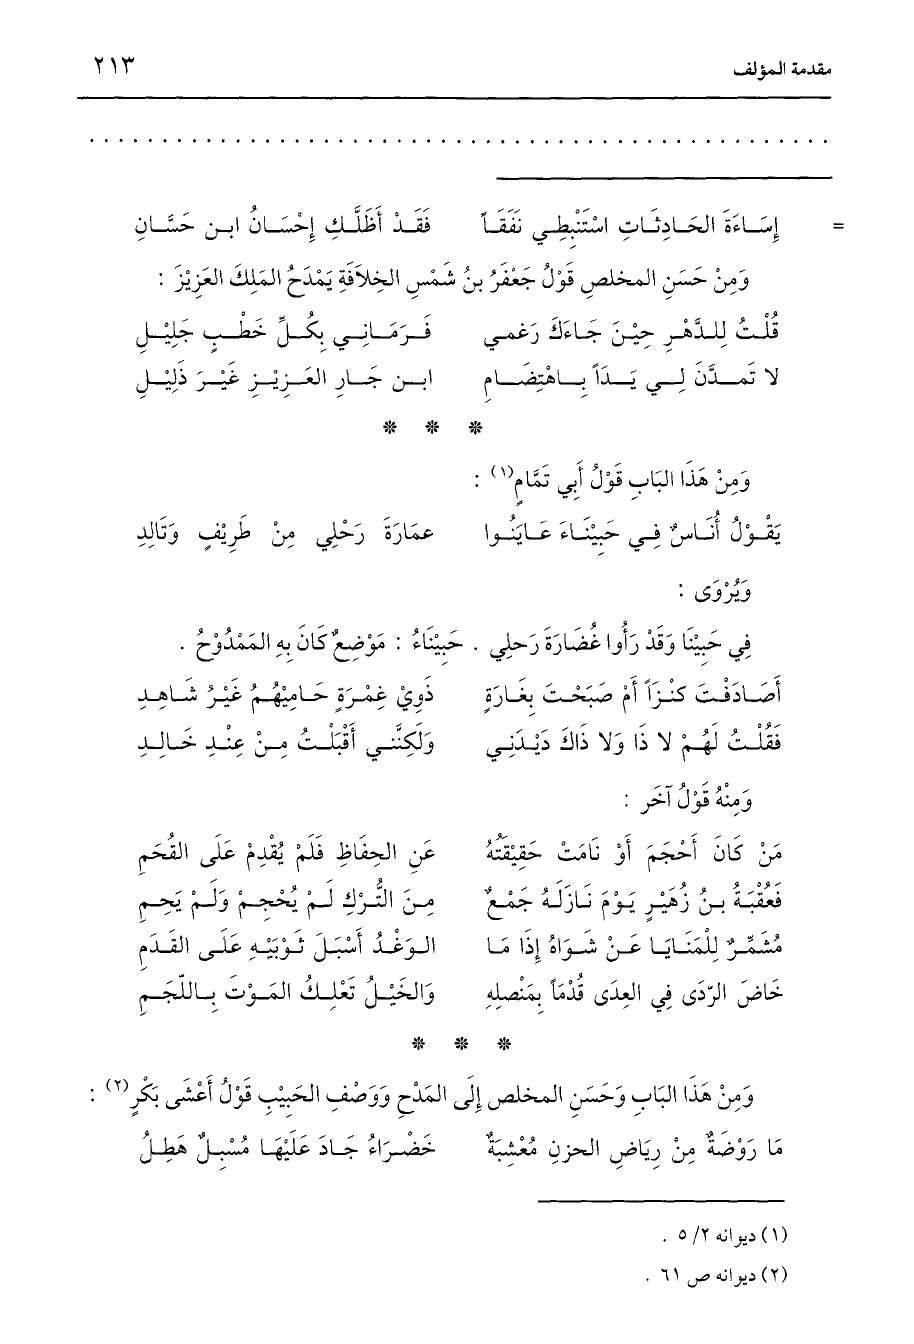 مقدمة المؤلف ٢١٣
. . . . . . . . . . . . . . . . . . . . . . . . . . . . . . . . . . . . . . . . . . . . . . . . .
= إِسَاءَةَ الحَادِثَاتِ اسْتَنْبِطِي نَفَقَاً فَقَدْ أَظَلَّكِ إِحْسَانُ ابنِ حَسَّانِ
وَمِنْ حَسَنِ المخلصِ قَوْلُ جَعْفَرُ بنُ شَمْسِ الخِلاَفَةِ يَمْدَحُ المَلِكَ العَزِيْزَ :
قُلْتُ لِلدَّهْرِ حِيْنَ جَاءَكَ رَغمي فَرَمَانِي بِكُلِّ خَطْبٍ جَلِيْلِ
لا تَمدَّنَ لِي يَدَاً بِاهْتِضَامٍ ابن جَارِ العَزِيْزِ غَيْرَ ذَلِيْلِ
* * *
وَمِنْ هَذَا البَابِ قَوْلُ أَبِي تَمَّامٍ(١) :
يَقُوْلُ أُنَاسٌ فِي حَبِيْنَاءَ عَايَنُوا عمَارَةَ رَحْلِي مِنْ طَرِيْفٍ وَتَالِدِ
وَيُرْوَى :
فِي حَبِيْنَا وَقَدْ رَأَوا غُضَارَةَ رَحلِي . حَبِيْنَاءُ : مَوْضِعٌ كَانَ بِهِ المَمْدُوْحُ .
أَصَادَفْتَ كنْزَاً أَمْ صَبَحْتَ بِغَارَةٍ ذَوِيْ غِمْرَةٍ حَامِيْهُمُ غَيْرُ شَاهِدِ
فَقُلْتُ لَهُمْ لا ذَا وَلا ذَاكَ دَيْدَنِي وَلَكِنَّنِي أَقْبَلْتُ مِنْ عِنْدِ خَالِدِ
وَمِنْهُ قَوْلُ آخَر :
مَنْ كَانَ أَحْجَمَ أَوْ نَامَتْ حَقِيْقَتُهُ عَنِ الحِفَاظِ فَلَمْ يُقْدِمْ عَلَى القُحَمِ
فَعُقْبَةُ بنُ زُهَيْرٍ يَوْمَ نَازَلَهُ جَمْعٌ مِنَ التُّرْكِ لَمْ يُحْجِمْ وَلَمْ يَحِمِ
مُشَمِّرٌ لِلْمَنَايَا عَنْ شَوَاهُ إِذَا مَا الوَغْدُ أَسْبَلَ ثَوْبَيْهِ عَلَى القَدَمِ
خَاضَ الرّدَى فِي العِدَى قُدْمَاً بِمَنْصلِهِ وَالخَيْلُ تَعْلِكُ المَوْتَ بِاللّجَمِ
* * *
وَمِنْ هَذَا البَابِ وَحَسَنِ المخلصِ إِلَى المَدْحِ وَوَصْفِ الحَبِيْبِ قَوْلُ أَعْشَى بَكْرٍ(٢) :
مَا رَوْضَةٌ مِنْ رِيَاضِ الحزنِ مُعْشِبَةٌ خَضْرَاءُ جَادَ عَلَيْهَا مُسْبِلٌ هَطِلُ
(١) ديوانه ٢/ ٥ .
(٢) ديوانه ص ٦١ .